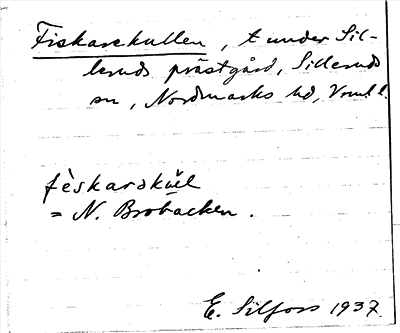 Fiskarekullen, t under Sil-
leruds prästgård, Silleruds
sn, Nordmarks hd, Vrml l.
fèskarskul
= N. Brobacken.
E. Silfors 1937.